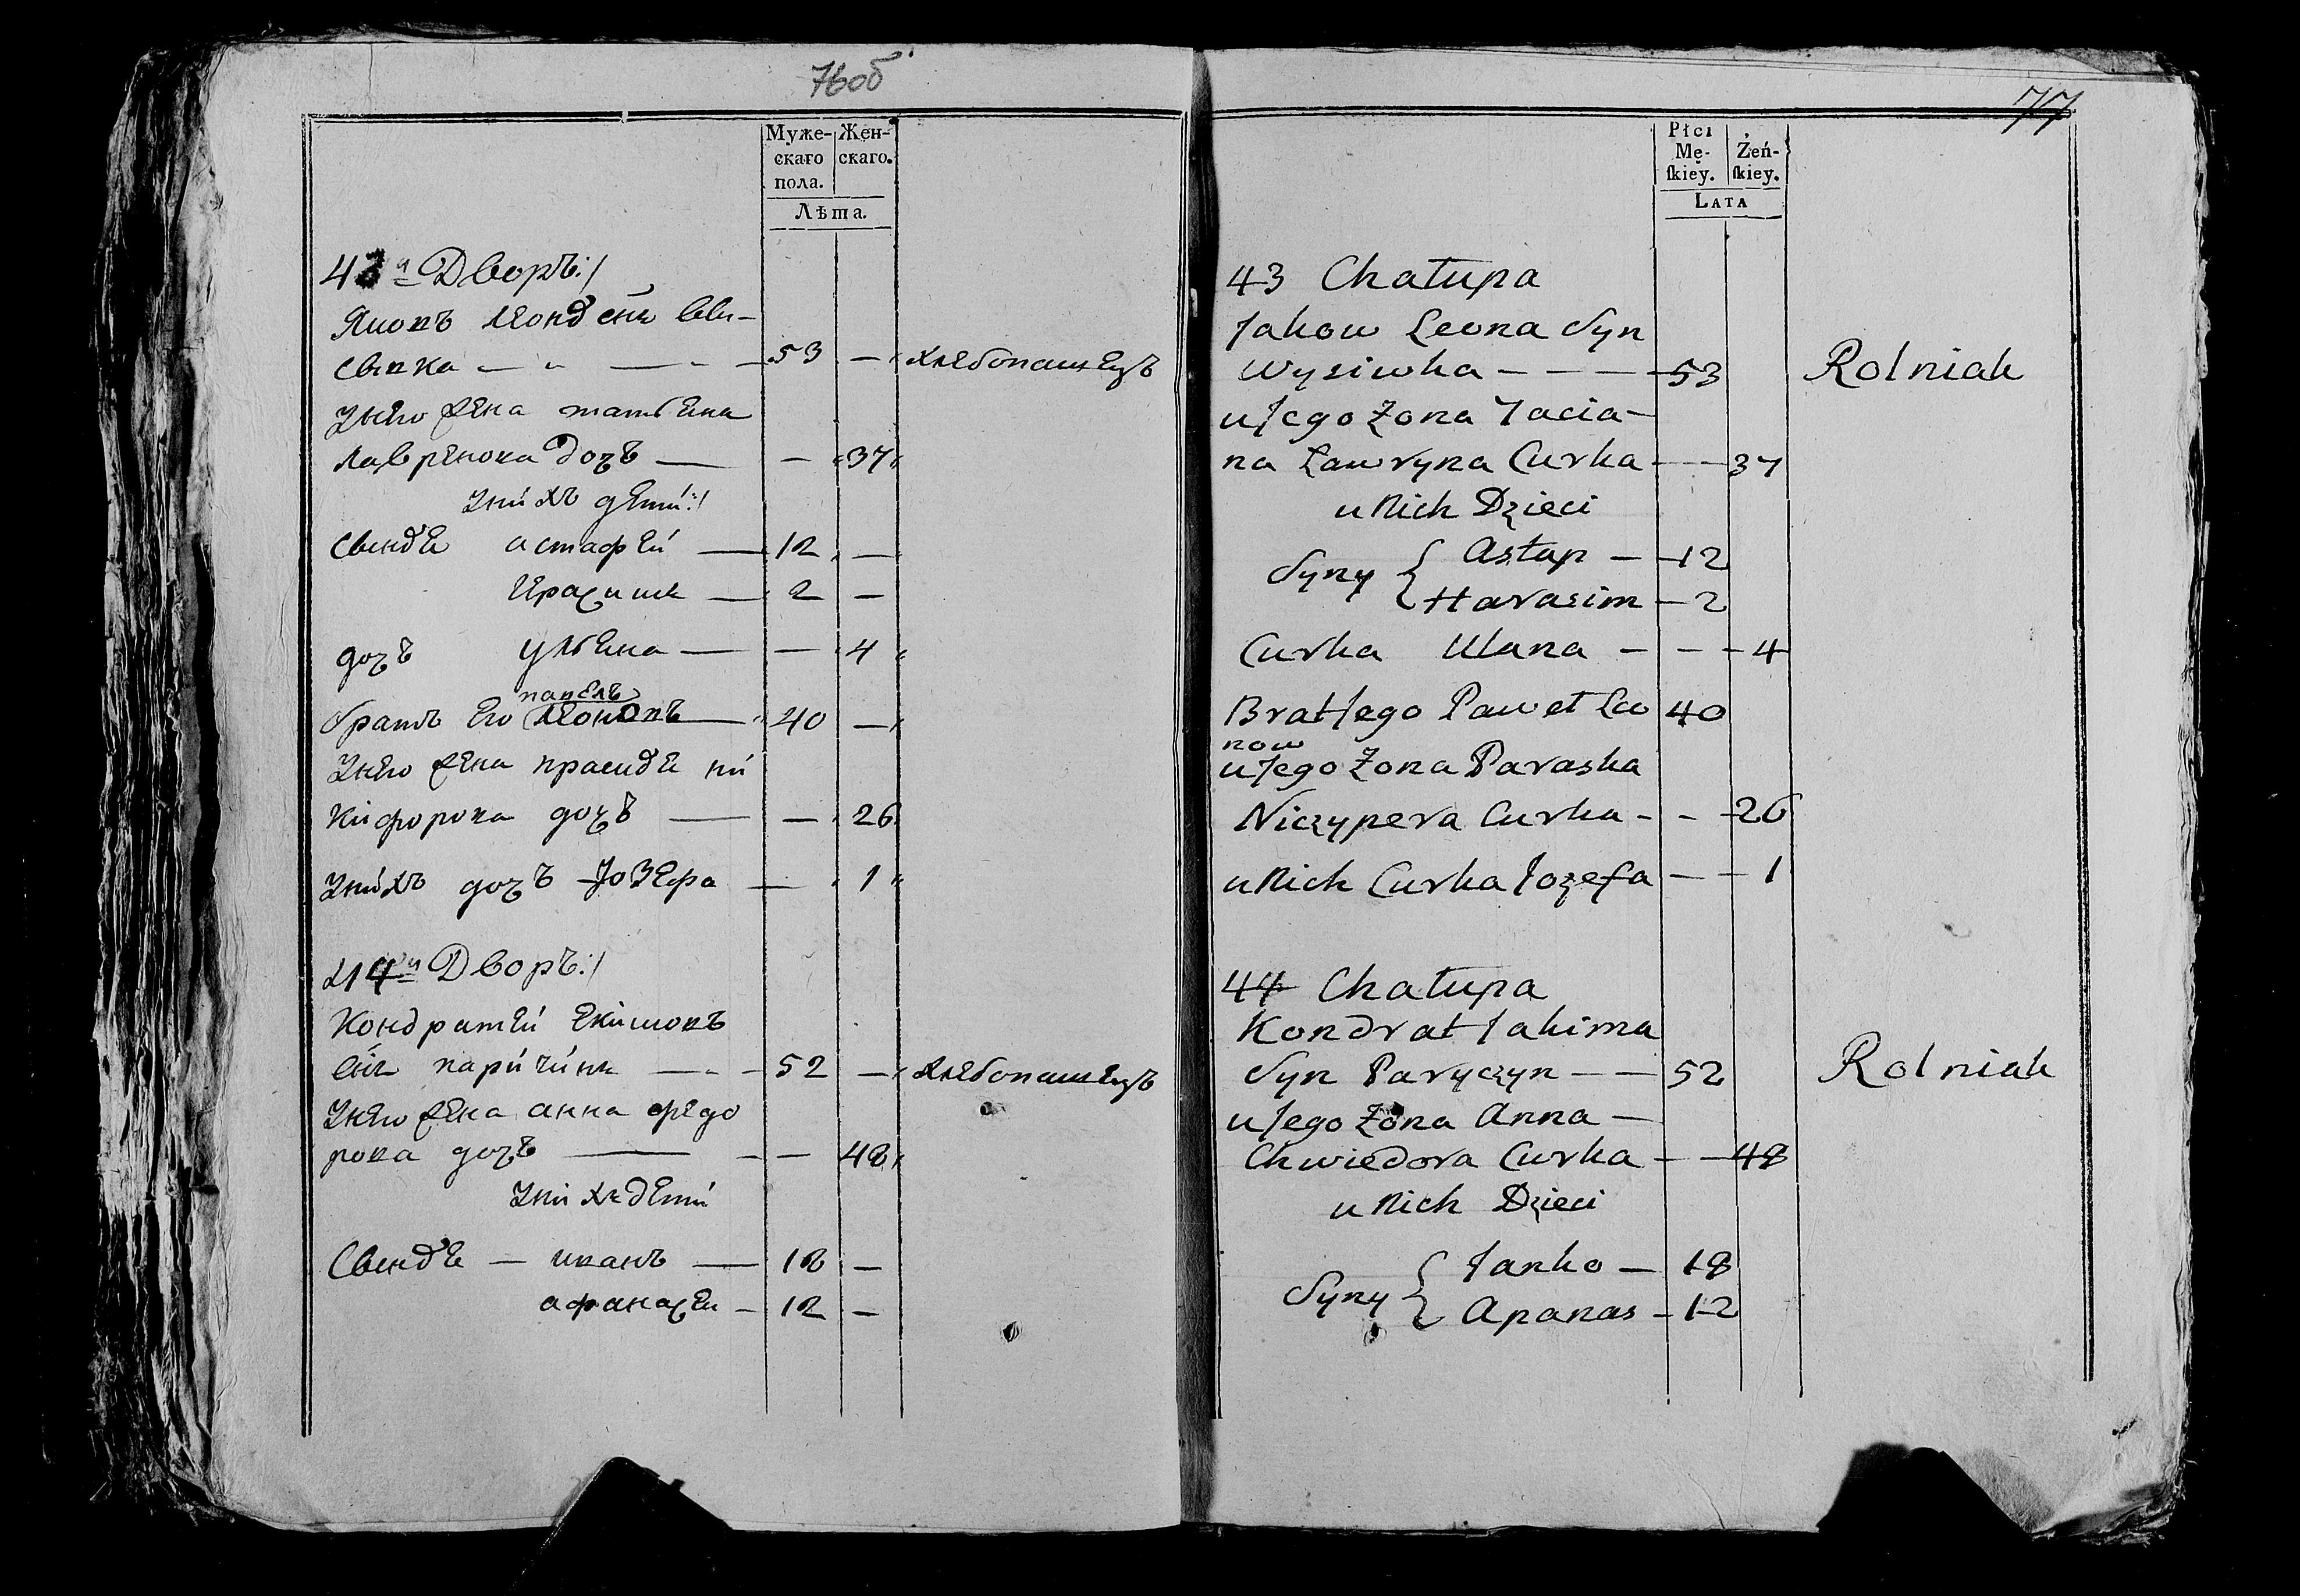 76об
Муже-
скаго
пола.
Жен-
скаго.
Лѣта.
43й Дворъ:/
53 — хлебопашецъ
Унего жена татьяна
дочъ — — 37
Унихъ дети:/
астафей — 12 —
2 —
дочъ ульяна — — 4
павелъ
братъ его — 40 —
Унего жена
дочъ — — 26
Унихъ дочъ Іозефа — 1
44й Дворъ:/
Кондратей Екимовъ
52 — хлебопашецъ
Унего жена анна федо
рова дочъ — — 48
Унихъ дети
иванъ — 18 —
афанасей — 12 —
77
Płci
Mę-
ſkiey.
Żeń-
ſkiey.
LATA
43 Chałupa
Jakow Leona Syn
Wysiwka — — — 53 Rolniak
u Jego Żona Tacia-
na Ławryna Curka — — 37
u Nich Dzieci
Syny { Astap — 12
Harasim — 2
Curka Ulana — — — 4
Brat Jego Paweł Leo 40
now
u Jego Żona Paraska
Niczypera Curka - - 26
u Nich Curka Jozefa — — 1
44 Chałupa
Kondrat Jakima
Syn Paryczyn — — 52 Rolniak
u Jego Żona Anna —
Chwiedora Curka — — 48
u Nich Dzieci
Syny { Janko — 18
Apanas - 12